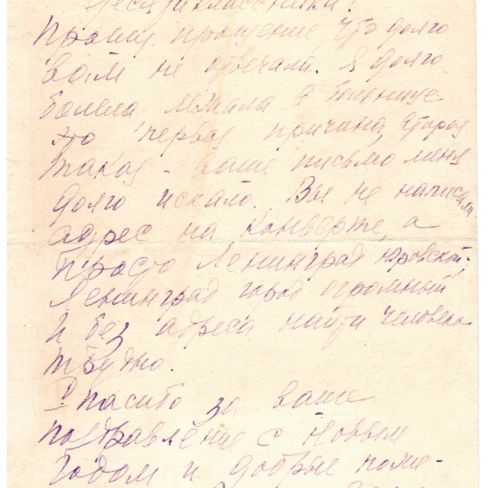 десятиклассники!
Прошу прощение, что долго
вам не отвечала. Я долго
болела лежала в больнице
это первая причина, вторая
такая - ваше письмо меня
долго искало. Вы не написали
адрес на конверте, а
просто Ленинград Юровской.
Ленинград город огромный
и без адреса найти человека
трудно.
Спасибо за ваше
поздравление с Новым
годом и добрые поже-